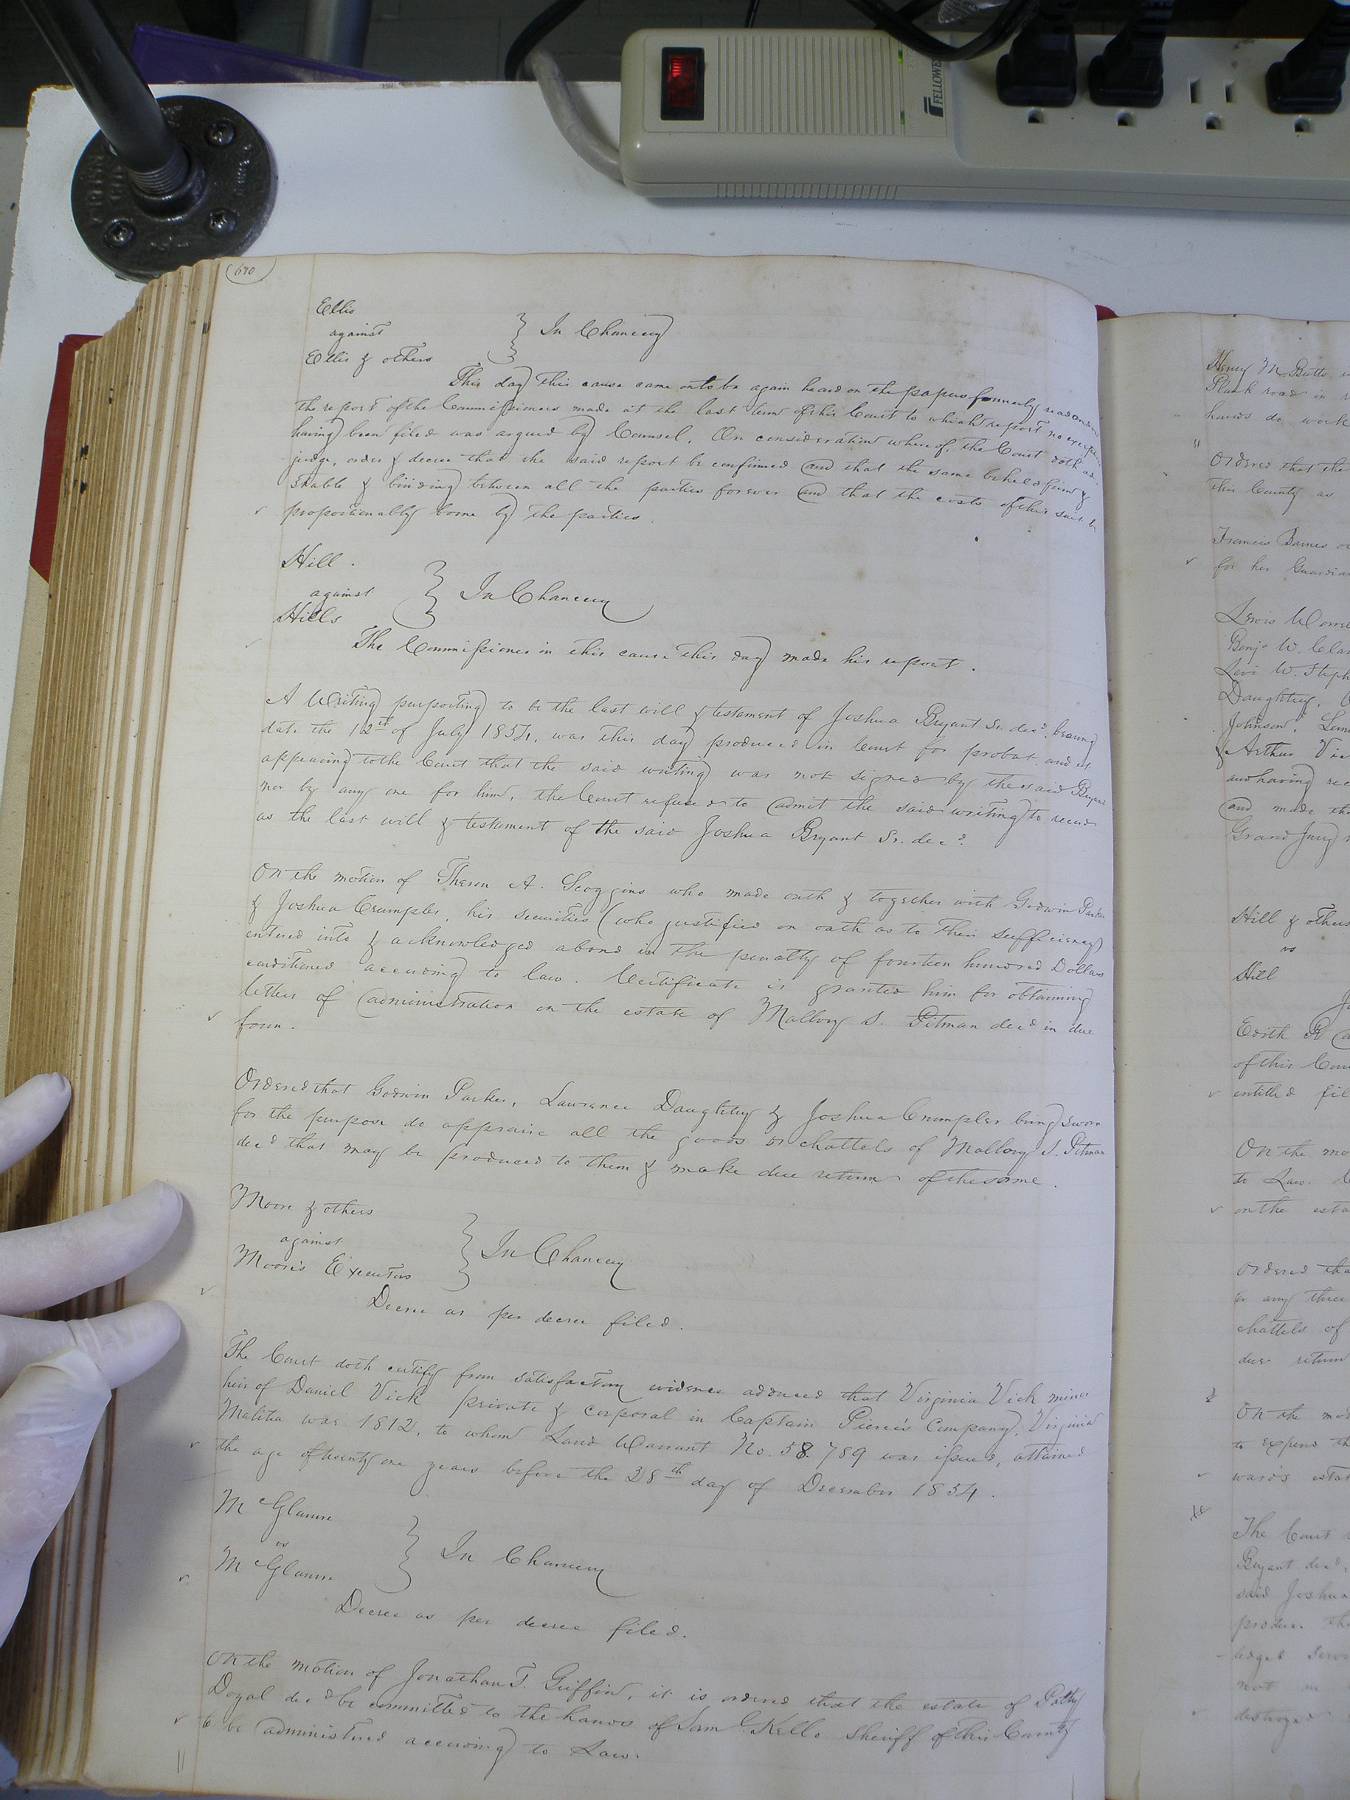 FELLOWES
640
Ellis
against } In Chancery
Ellis & others
This day this cause came on to be again heard on the papers formerly read and on
the report of the Commissioners made at the last term of this Court to which report no exception
having been filed was argued by Counsel. On consideration whereof, the Court doth ad-
judge, order & decree that the said report be confirmed and that the same be held firm &
stable & binding between all the parties forever and that the costs of this suit be
proportionally borne by the parties.
Hill
against } In Chancery
Hills
The Commissioner in this cause this day made his report.
A Writing purporting to be the last will & testament of Joshua Bryant Sr. decd. bearing
date the 12th of July 1854, was this day produced in Court for probat and it
appearing to the Court that the said writing was not signed by the said Bryant
nor by any one for him, the Court refused to admit the said writing to record
as the last will & testament of the said Joshua Bryant Sr. decd.
On the motion of Theron A. Scoggins who made oath & together with Godwin Parker
& Joshua Crumpler, his securities (who justified on oath as to their sufficiency)
entered into & acknowledged a bond in the penalty of fourteen hundred Dollars
conditioned according to law. Certificate is granted him for obtaining
letters of administration on the estate of Mallory S. Pitman decd in due
form.
Ordered that Godwin Parker, Lawrence Daughtry & Joshua Crumpler being sworn
for the purpose do appraise all the goods or chattels of Mallory S. Pitman
decd that may be produced to them & make due return of the same.
Moore & others
against } In Chancery
Moore's Executors
Decree as per decree filed.
The Court doth certify from satisfactory evidence adduced that Virginia Vick minor
heir of Daniel Vick private & corporal in Captain Pierce's Company, Virginia
Malitia war 1812, to whom Land Warrant No. 58.789 was issued, attained
the age of twenty one years before the 28th day of December 1854.
McGlaune
vs } In Chancery
McGlaune
Decree as per decree filed.
On the motion of Jonathan T. Griffin, it is ordered that the estate of Patsy
Doyal decd be committed to the hands of Sam C Kello Sheriff of this County
to be administered according to Law.
Henry M Butts
Plank road in
hands do work
Ordered that the
this County as
Francis Barnes
for her Guardian
Lewis
Benj. W. Cla
Levi W. Steph
Daughtry,
Johnson,
& Arthur
and having rec
and made the
Grand Jury
Hill & others
vs
Hill
Edith
of this Cou
entitled fil
On the mo
to Law.
on the esta
Ordered tha
or any three
chattels of
due return
On the mot
to expend th
ward's estat
The Court
Bryant decd,
said Joshua
produce the
not
destroyed